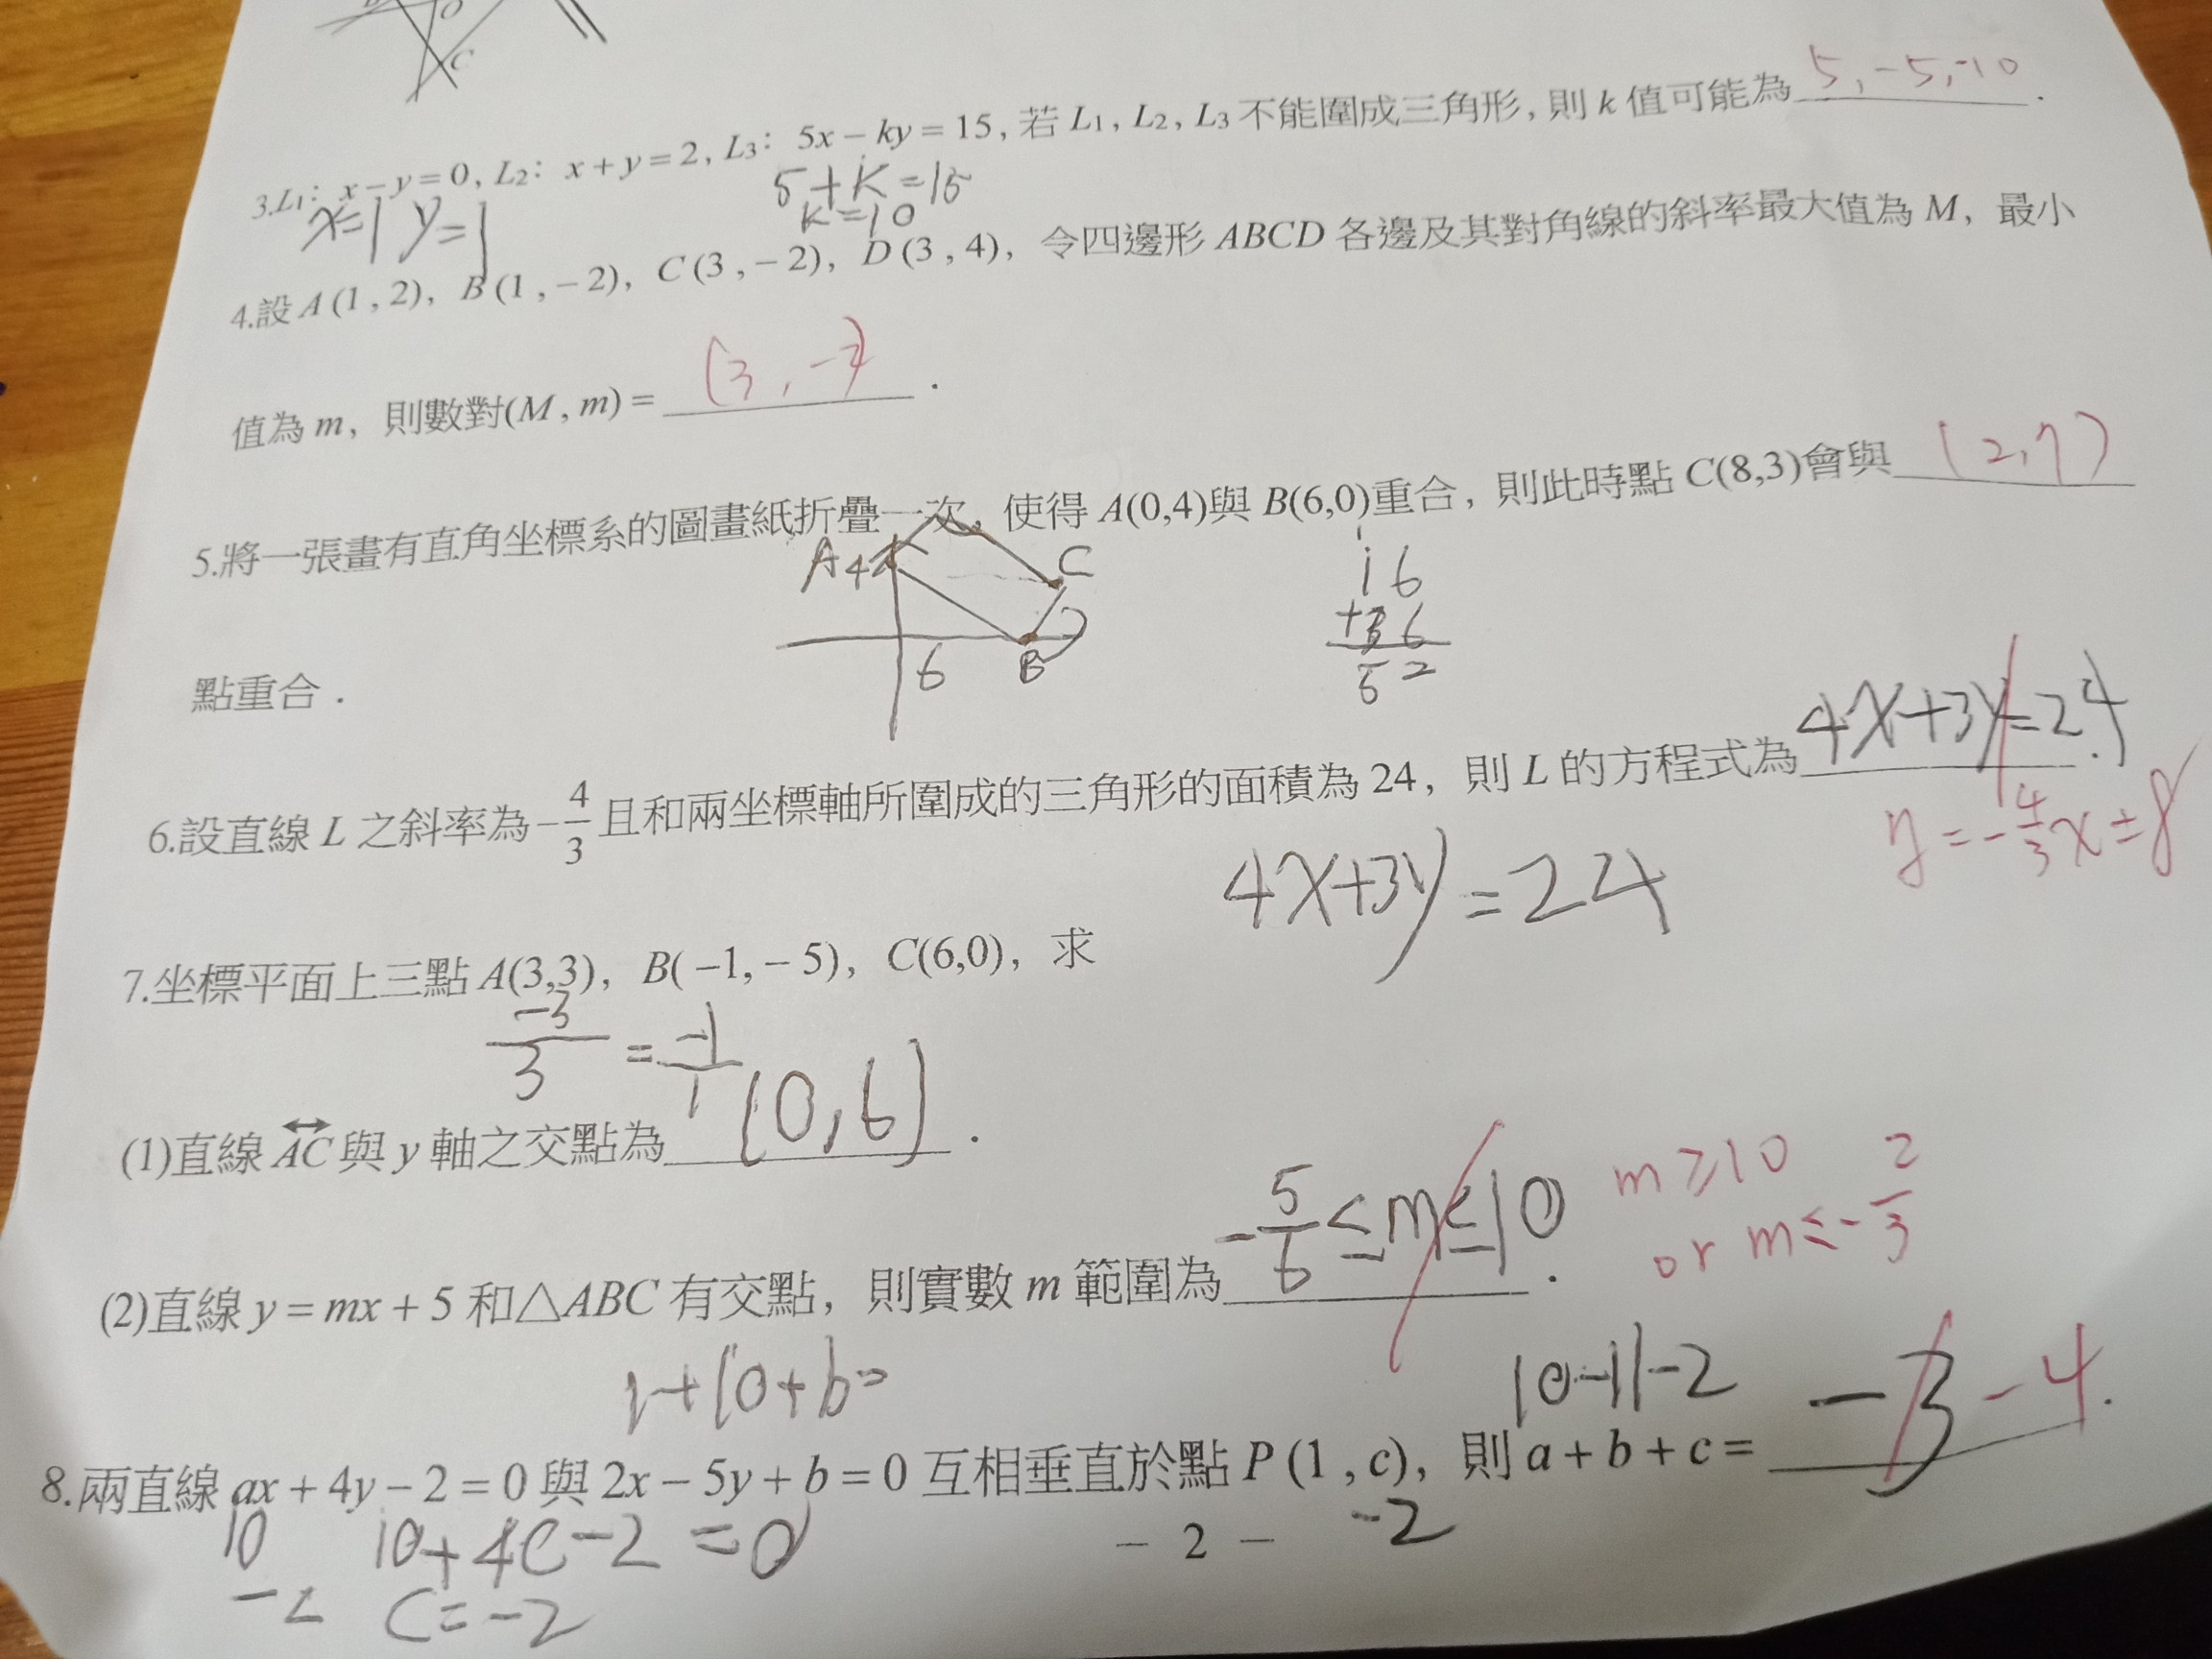 O
C
5, -5, -10
3.L1: x - y = 0, L2: x + y = 2, L3: 5x - ky = 15, 若 L1, L2, L3 不能圍成三角形, 則 k 值可能為 .
x=1 y=1
5+k=15
k=10
4.設 A (1 , 2), B (1 , - 2), C (3 , - 2), D (3 , 4), 令四邊形 ABCD 各邊及其對角線的斜率最大值為 M, 最小
值為 m, 則數對(M , m) = (3, -3) .
5.將一張畫有直角坐標系的圖畫紙折疊一次, 使得 A(0,4)與 B(6,0)重合, 則此時點 C(8,3)會與 (2,7)
A 4 C
6 B
16
+36
52
點重合 .
6.設直線 L 之斜率為 -4/3 且和兩坐標軸所圍成的三角形的面積為 24, 則 L 的方程式為 4x+3y=24 .
y = -4/3 x ± 8
4x+3y=24
7.坐標平面上三點 A(3,3), B( -1, - 5), C(6,0), 求
-3/3 = -1/1
(1)直線 AC 與 y 軸之交點為 (0,6) .
(2)直線 y = mx + 5 和△ABC 有交點, 則實數 m 範圍為 -5/6 ≤ m ≤ 10 .
m ≥ 10
or m ≤ -2/3
+10+b=
10-11-2
8.兩直線 ax + 4y - 2 = 0 與 2x - 5y + b = 0 互相垂直於點 P (1 , c), 則 a + b + c = -3 -4 .
10
10+4c-2=0
-2
c=-2
-2
- 2 -